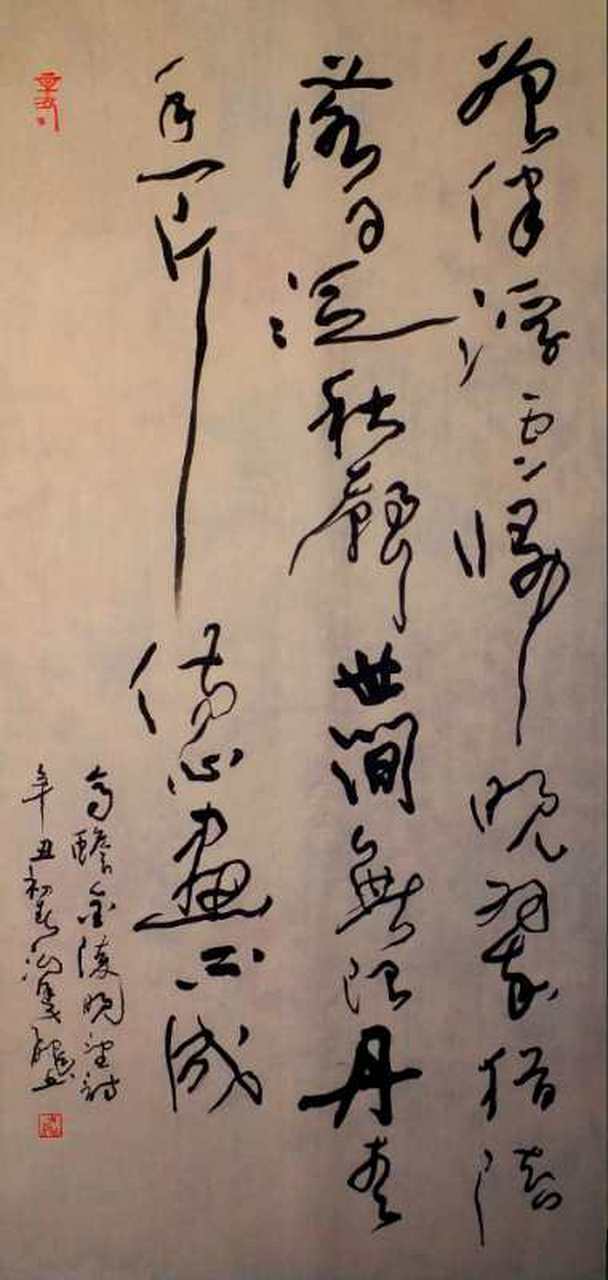 曾伴浮雲歸晚翠猶陪
落日泛秋聲世間無限丹青
手一片傷心畫不成
高蟾金陵晚望詩
辛丑初春